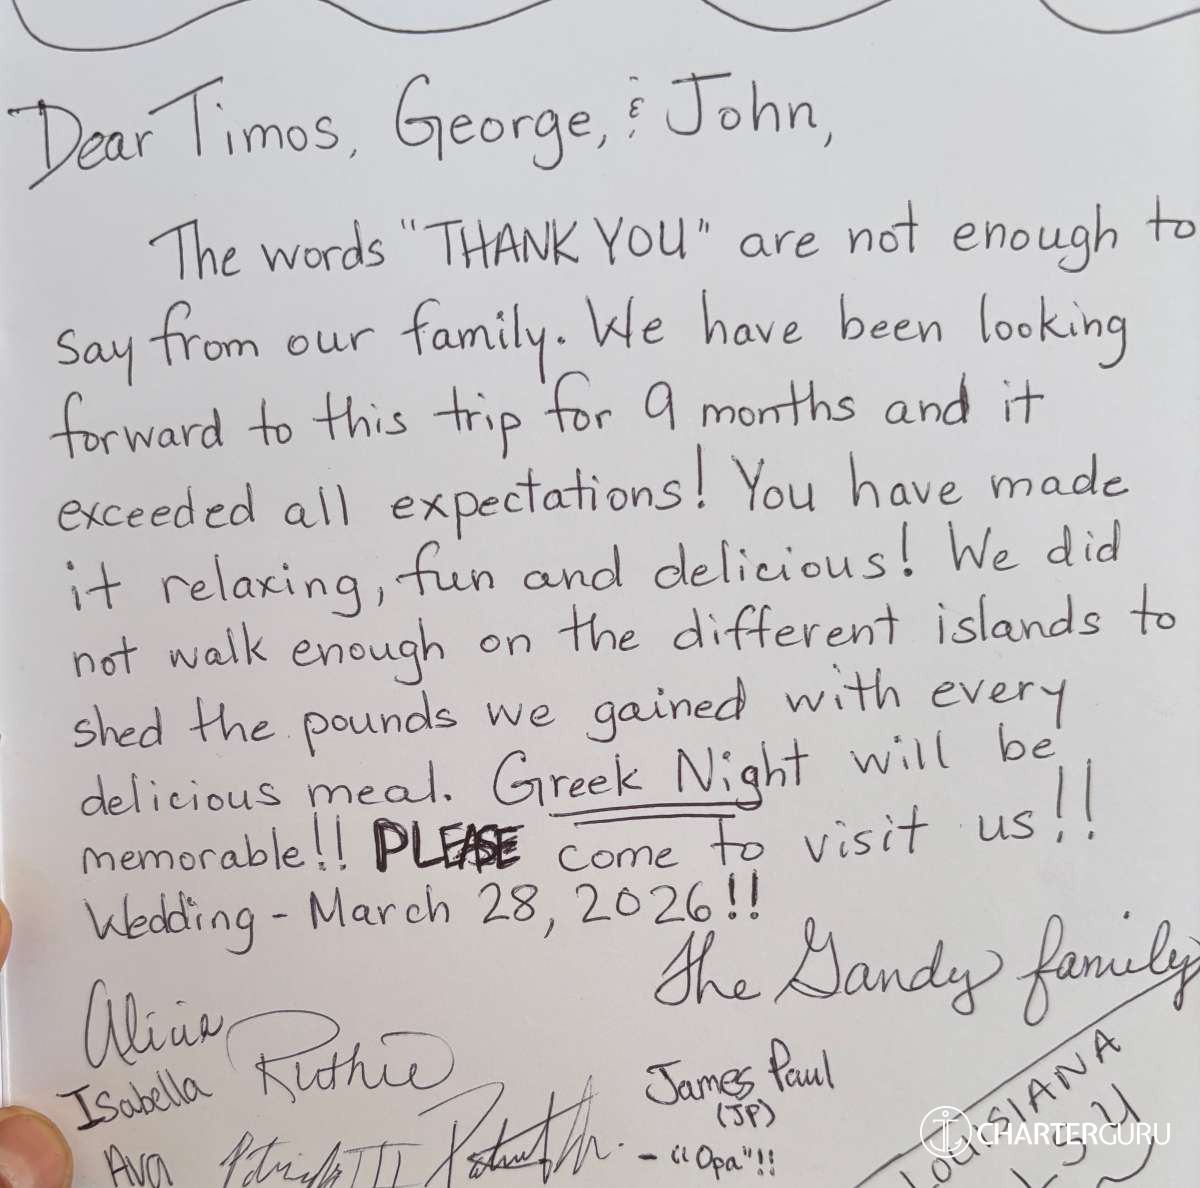 Dear Timos, George, & John,
The words "THANK YOU" are not enough to
say from our family. We have been looking
forward to this trip for 9 months and it
exceeded all expectations! You have made
it relaxing, fun and delicious! We did
not walk enough on the different islands to
shed the pounds we gained with every
delicious meal. Greek Night will be
memorable!! PLEASE come to visit us!!
Wedding - March 28, 2026!!
The Gandy family
Alicia
Ruthie
Isabella
James Paul
(JP)
- "Opa"!!
Ava
Patrick III
LOUISIANA
CHARTERGURU